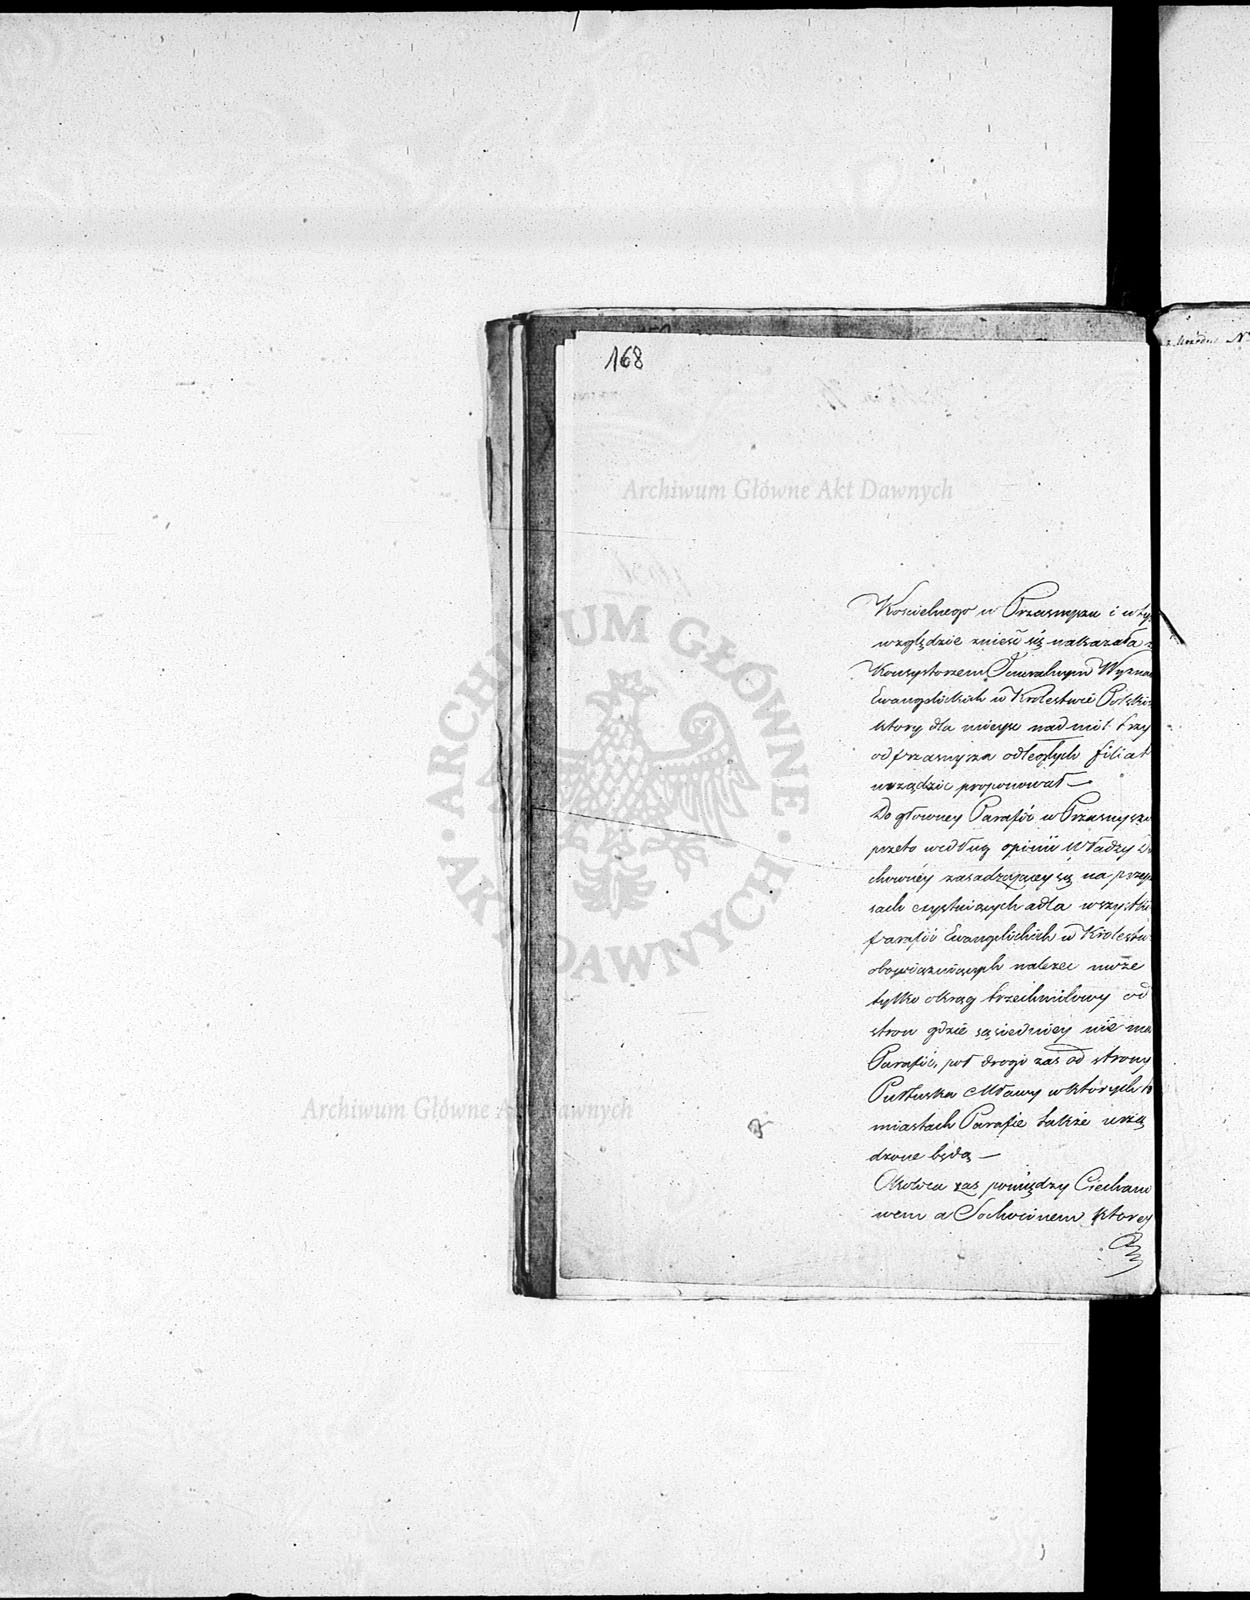 168
z Urzędu N
Archiwum Główne Akt Dawnych
Koscielnego w Przasnyszu i w ty
względzie znieść się nakazała z
Konsystorzem Jeneralnym Wyznań
Ewangelickich w Krolestwie Polskie
ktory dla mieysc nad mil trzy
od Przasnysza odległych filiał
urządzić proponował —
Do głowney Parafii w Przasnyszu
przeto według opinii Władzy Du
chowney zasadzaiącey się na przepi
sach czystniących a dla wszystki
Parafii Ewangelickich w Krolestw
obowiązuiących nalezec może
tylko okrąg trzechmilowy od
stron gdzie sąsiedniey nie ma
Parafii, poł drogi zas od strony
Pułtuska Mławy w ktorych to
miastach Parafie także urzą
dzone będą —
Okolica zas pomiędzy Ciechano
wem a Sochocinem ktorey
ARCHIWUM GŁÓWNE · AKT DAWNYCH ·
Archiwum Główne Akt Dawnych